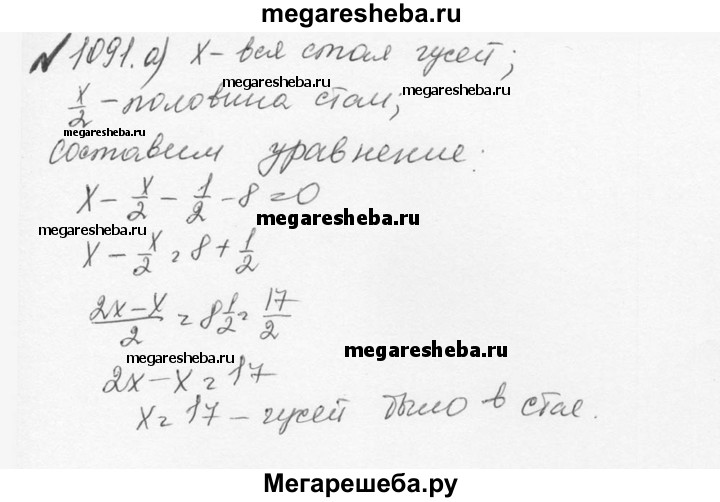 megaresheba.ru
№1091. а) х - вся стая гусей;
megaresheba.ru
x/2 - половина стаи;
megaresheba.ru
megaresheba.ru
составим уравнение:
x - x/2 - 1/2 - 8 = 0
megaresheba.ru
megaresheba.ru
x - x/2 = 8 + 1/2
(2x - x)/2 = 8 1/2 = 17/2
megaresheba.ru
megaresheba.ru
2x - x = 17
x = 17 - гусей было в стае.
Мегарешеба.ру